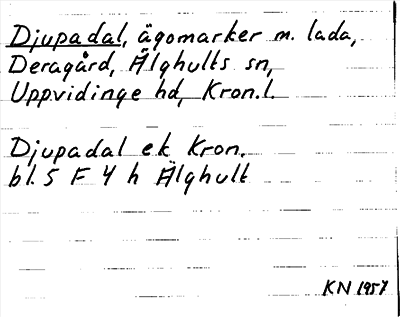 Djupadal, ägomarker m. lada,
Deragård, Älghults sn,
Uppvidinge hd, Kron.l.
Djupadal ek Kron.
bl. 5 F 4 h Älghult
KN 1957